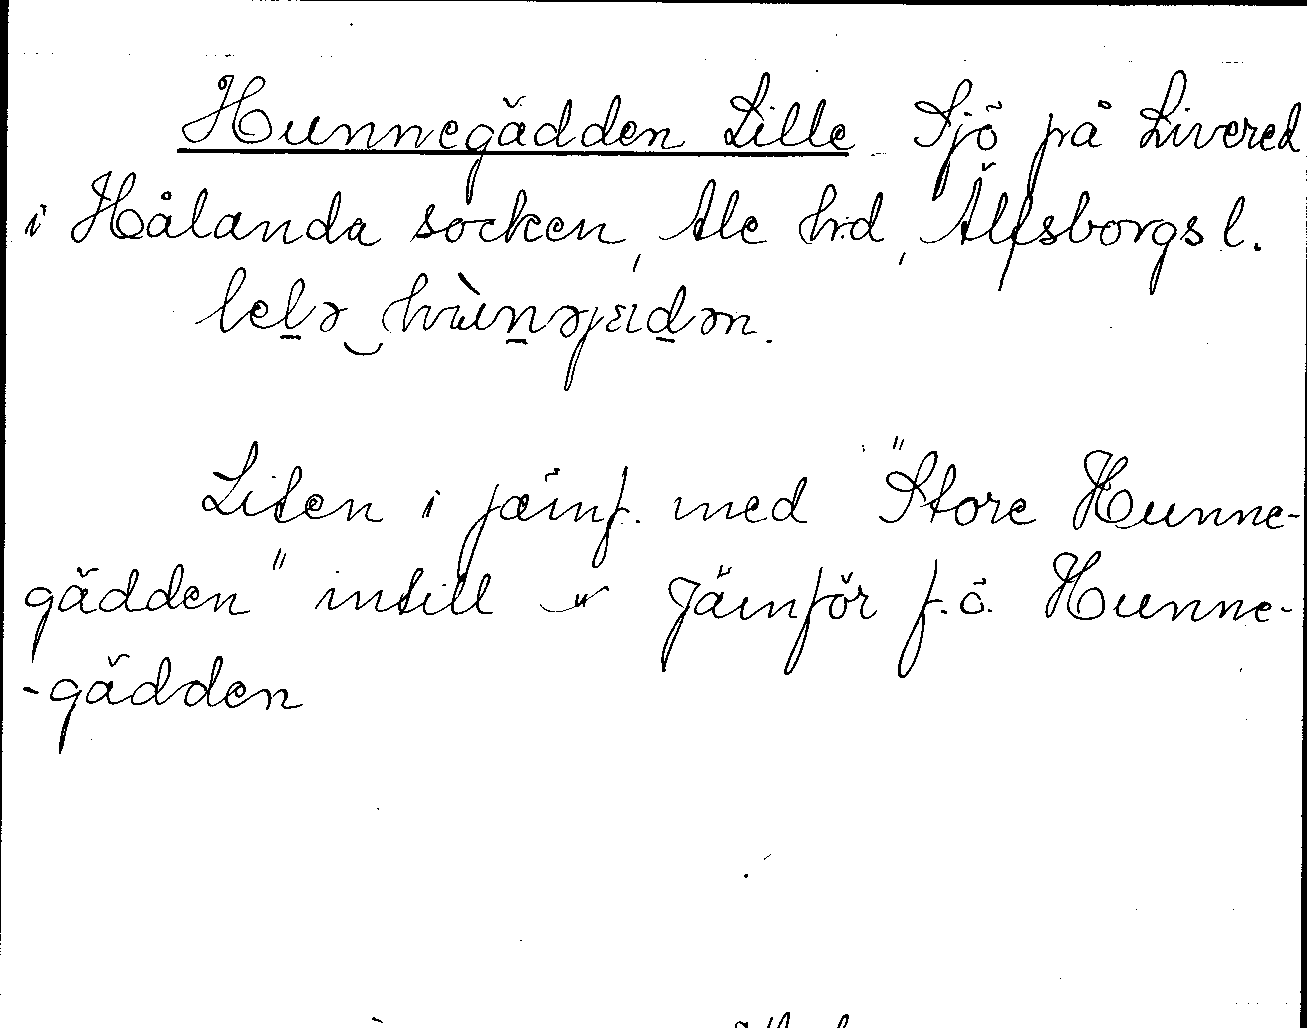 Hunnegädden Lille Sjö på Livered
i Hålanda socken, Ale hrd, Älfsborgs l.
Liten i jämf. med "Store Hunne-
gädden" intill Jämför f.ö. Hunne-
-gädden